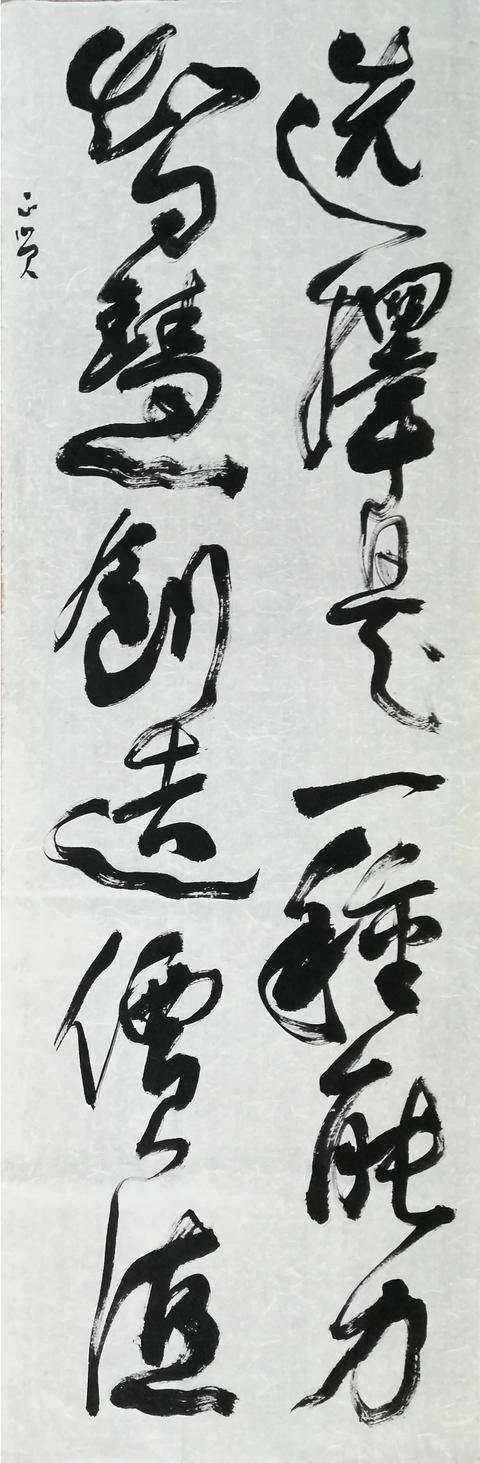 选擇是一種能力
智慧創造價值
正贤